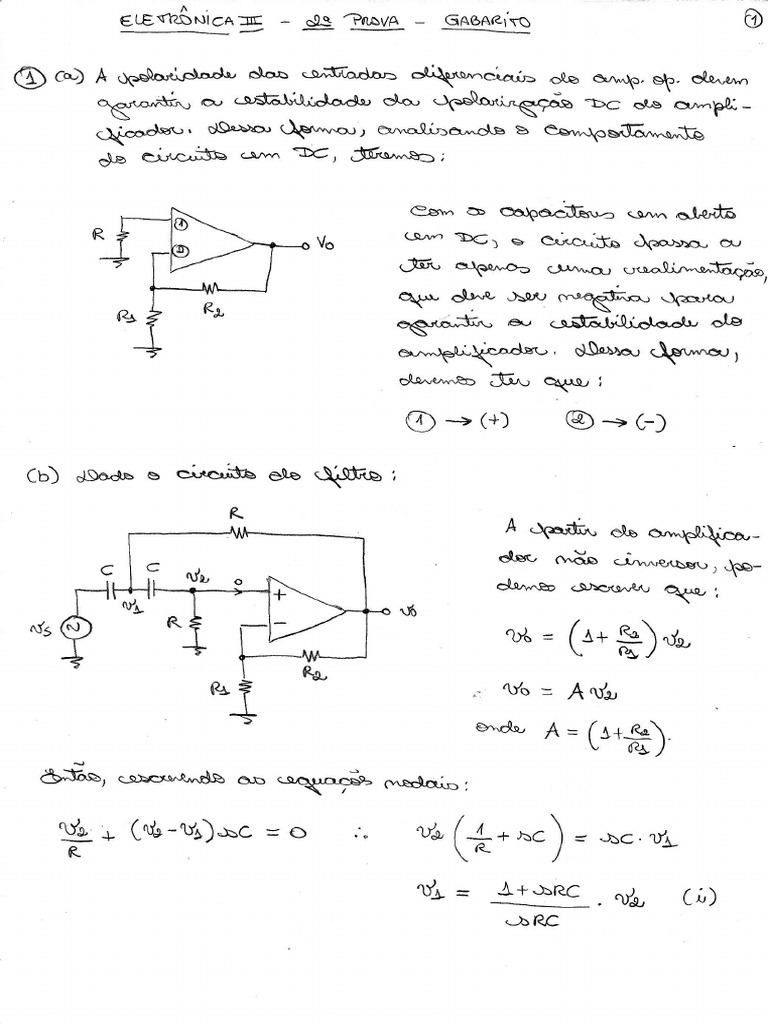 ELETRÔNICA III - 2ª PROVA - GABARITO
1
1 (a) A polaridade das entradas diferenciais do amp. op. devem
garantir a estabilidade da polarização DC do ampli-
ficador. Dessa forma, analisando o comportamento
do circuito em DC, teremos:
R
1
2
Vo
R1
R2
Com os capacitores em aberto
em DC, o circuito passa a
ter apenas uma realimentação,
que deve ser negativa para
garantir a estabilidade do
amplificador. Dessa forma,
devemos ter que:
1 → (+) 2 → (-)
(b) Dado o circuito do filtro:
R
C C
v1
v2
0
+
-
vo
vs
R
R1
R2
A partir do amplifica-
dor não inversor, po-
demos escrever que:
vo = (1 + R2/R1) v2
vo = A v2
onde A = (1 + R2/R1).
Então, escrevendo as equações nodais:
v2/R + (v2 - v1) sC = 0 ∴ v2 (1/R + sC) = sC · v1
v1 = (1 + sRC)/sRC · v2 (i)